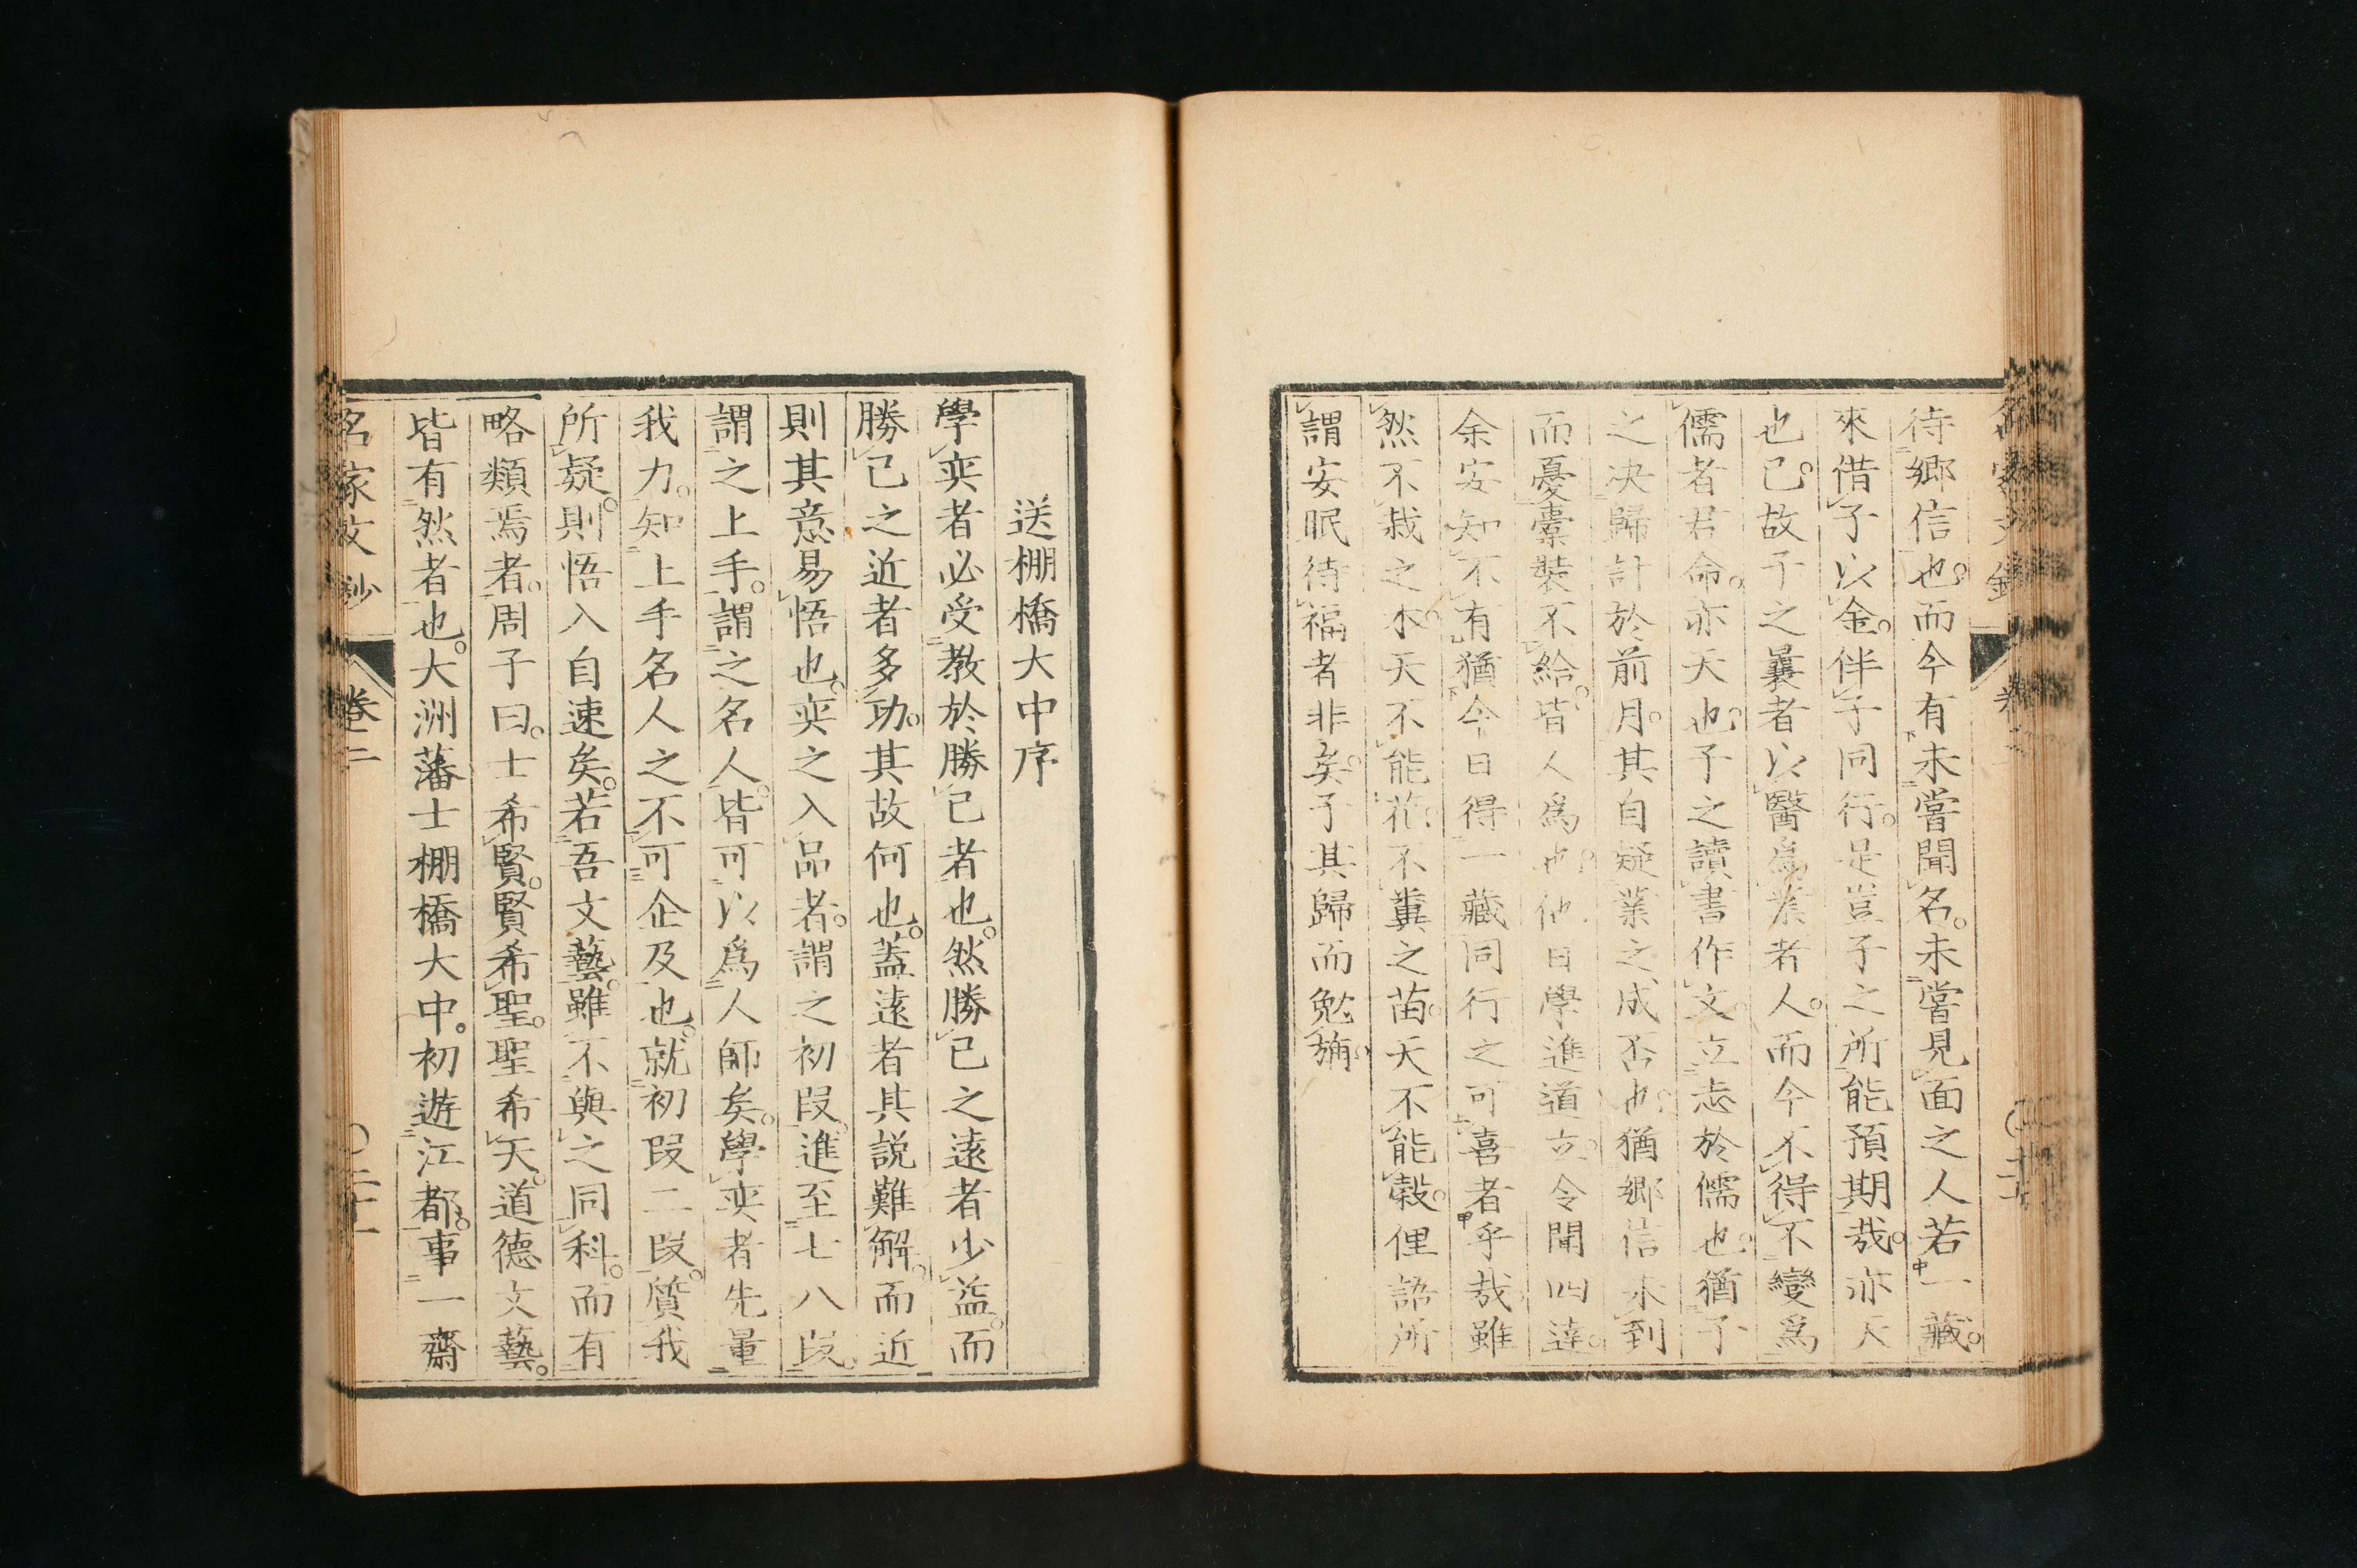 待鄉信也。而今有未嘗聞名。未嘗見面之人若一藏。
來借子以金。伴子同行。是豈子之所能預期哉。亦天
也。已故子之曩者以醫爲業者人。而今不得不變爲
儒者君命。亦天也。子之讀書作文。立志於儒也。猶子
之决歸計於前月。其自疑業之成否也。猶鄉信未到
而憂橐裝不給。皆人爲也。他日學進道立。令聞四達。
余安知不有猶今日得一藏同行之可喜者乎哉雖
然不栽之木。天不能花。不糞之苗。天不能穀。俚語所
謂安眠待福者非矣。子其歸而勉旃。
送棚橋大中序
學奕者必受教於勝己者也。然勝己之遠者少益。而
勝己之近者多功。其故何也。蓋遠者其説難解。而近
則其意易悟也。奕之入品者。謂之初段。進至七八段。
謂之上手。謂之名人。皆可以爲人師矣。學奕者先量
我力。知上手名人之不可企及也。就初段二段。質我
所疑。則悟入自速矣。若吾文藝。雖不與之同科。而有
略類焉者。周子曰。士希賢。賢希聖。聖希天。道德文藝。
皆有然者也。大洲藩士棚橋大中。初遊江都。事一齋
名家文抄 卷二